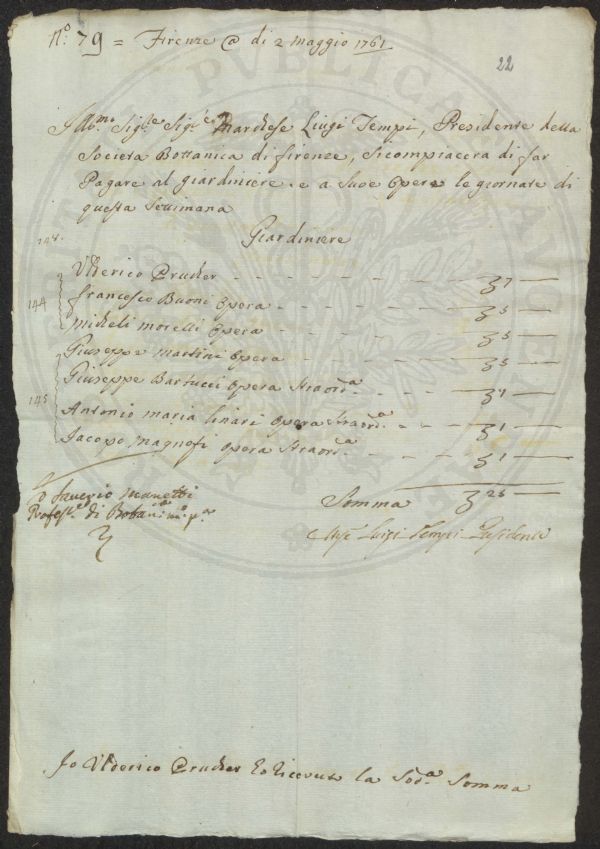 N.º 79 = Firenze @ di 2 Maggio 1761
22
Ill.mo Sig.re Sig.re Marchese Luigi Tempi, Presidente della
Societa Bottanica di firenze, si compiacera di far
Pagare al giardiniere e a Suoe Opera le giornate di
questa Settimana
Giardiniere
144
Uderico Prucher - - - - - - - 7
francesco Buoni Opera - - - - - 5
Micheli Morelli Opera - - - - - 5
Giuseppe Martini Opera - - - - - 5
145
Giuseppe Bartucci Opera Straord.a - - 1
Antonio Maria linari Opera Straord.a - - 1
Jacopo Magnofi Opera Straord.a - - 1
Saverio Manetti
Profess.e di Botan.ca m.o p.a
Somma 25
Luigi Tempi Presidente
Io Uderico Prucher ho riceuuto la Sod.a Somma